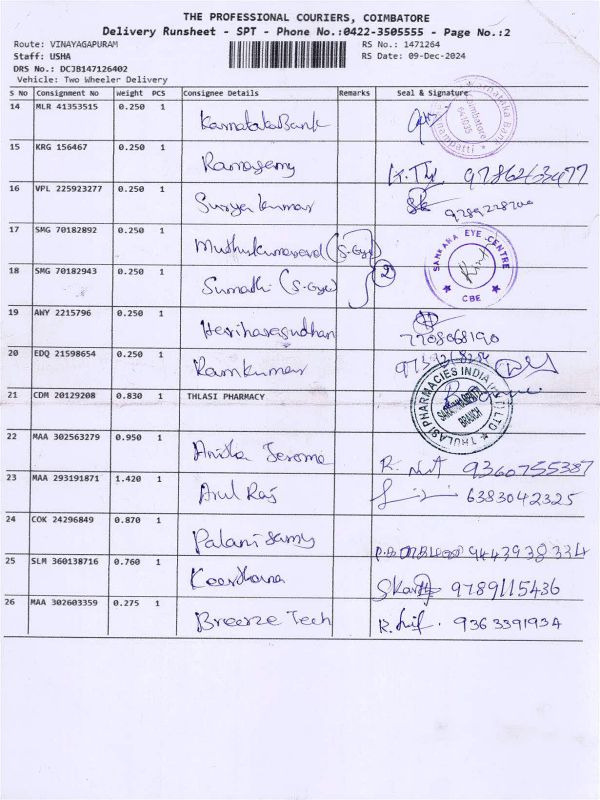 THE PROFESSIONAL COURIERS, COIMBATORE
Delivery Runsheet - SPT - Phone No.:0422-3505555 - Page No.:2
Route: VINAYAGAPURAM RS No.: 1471264
Staff: USHA RS Date: 09-Dec-2024
DRS No.: DCJB147126402
Vehicle: Two Wheeler Delivery
S No Consignment No Weight PCS Consignee Details Remarks Seal & Signature
14 MLR 41353515 0.250 1 Karnataka Bank
15 KRG 156467 0.250 1 Ramasamy
16 VPL 225923277 0.250 1 Surya kumar
17 SMG 70182892 0.250 1
SANKARA EYE CENTRE
CBE
18 SMG 70182943 0.250 1 Sumathi 2
19 AWY 2215796 0.250 1 7708068190
20 EDQ 21598654 0.250 1 Ramkumar
21 CDM 20129208 0.830 1 THLASI PHARMACY
THULASI PHARMACIES INDIA (P) LTD
BRANCH
22 MAA 302563279 0.950 1 Anitha Jerome 9360755387
23 MAA 293191871 1.420 1 Arul Raj 6383042325
24 COK 24296849 0.870 1 Palanisamy 9443938334
25 SLM 360138716 0.760 1 Keerthana 9789115436
26 MAA 302603359 0.275 1 Breeze Tech 9363391934